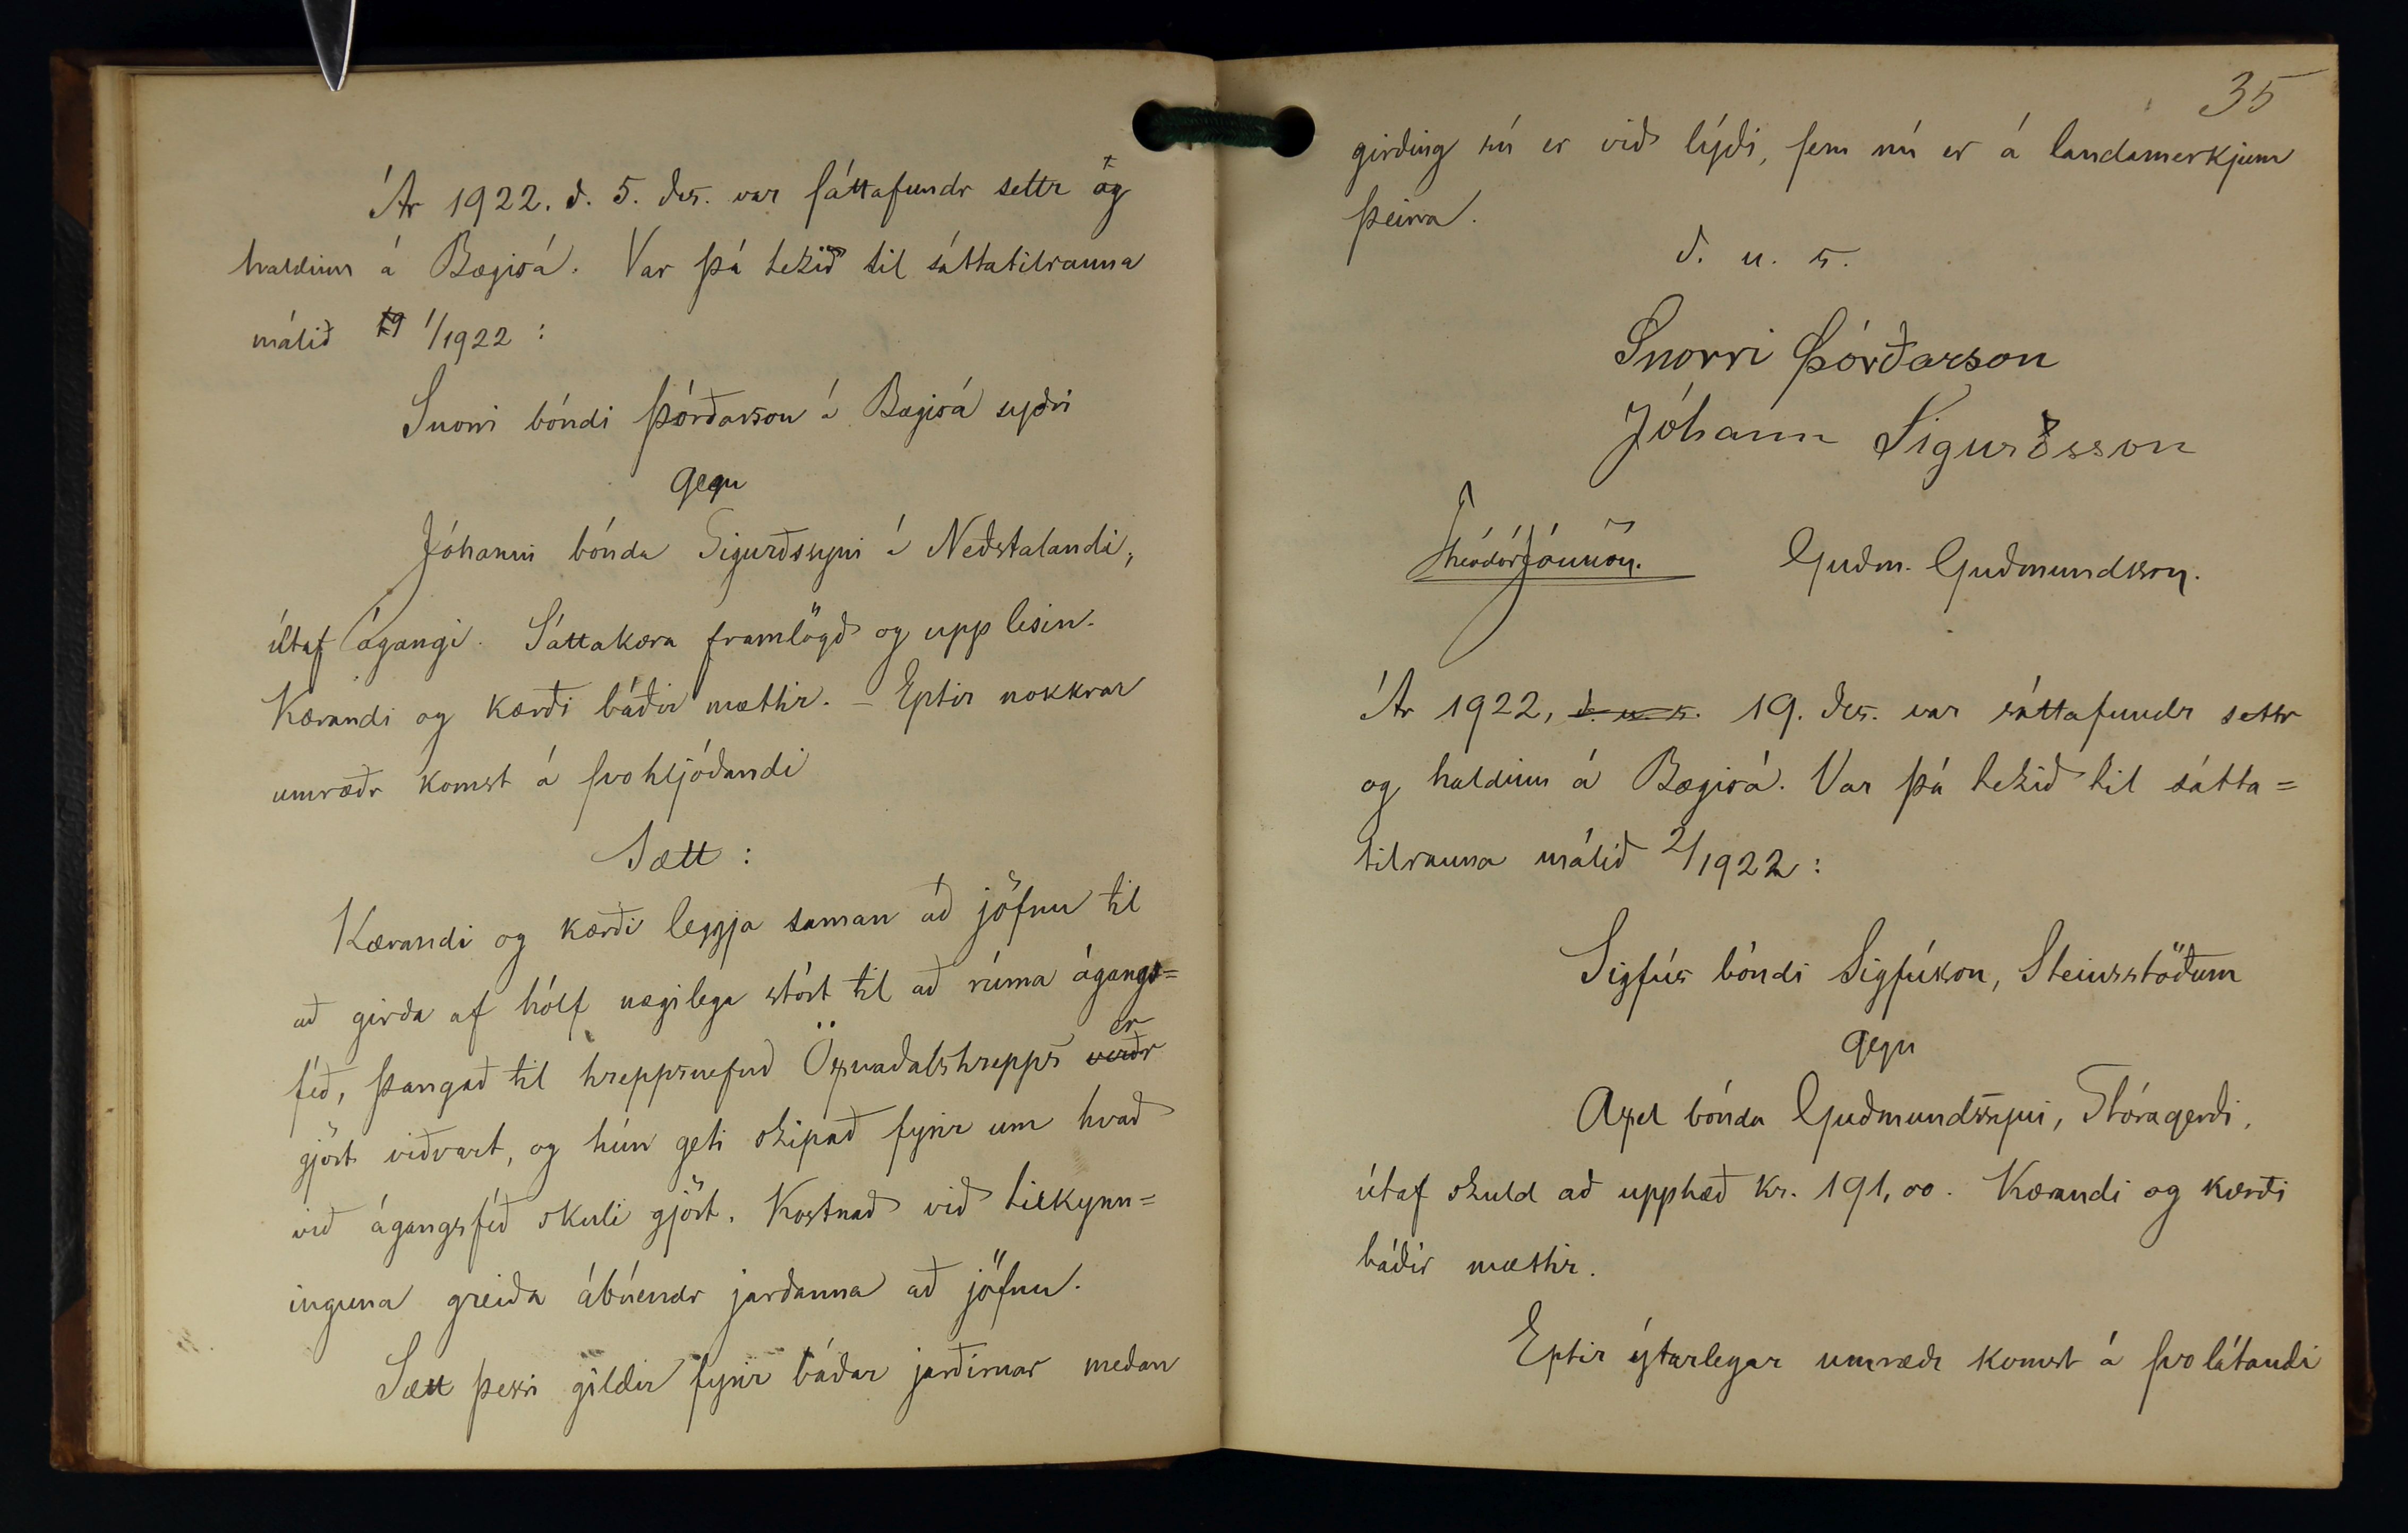 Ár 1922. d. 5. des. var sáttafundr settr og
haldinn á Bægisá. Var þá tekið til sáttatilrauna
málið 1/1922:
Snorri bóndi Þórðarson á Bægisá syðri
gegn
Jóhanni bónda Sigurðssyni á Neðstalandi,
útaf ágangi. Sáttakæra framlögð og upp lesin.
Kærandi og kærði báðir mættir. – Eptir nokkrar
umræðr komst á svohljóðandi
Sætt:
Kærandi og kærði leggja saman að jöfnu til
að girða af hólf nægilega stórt til að rúma ágangs=
féð, þangað til hreppsnefnd Öxnadalshrepps er
gjört viðvart, og hún geti skipað fyrir um hvað
við ágangsféð skuli gjört. Kostnað við tilkynn=
inguna greiða ábúendr jarðanna að jöfnu.
Sætt þessi gildir fyrir báðar jarðirnar meðan
35
girðing sú er við lýði, sem nú er á landamerkjum
þeirra.
d. u. s.
Snorri Þórðarson
Jóhann Sigurðsson
Theódór Jónsson. Guðm. Guðmundsson.
Ár 1922, d. u. s. 19. des. var sáttafundr settr
og haldinn á Bægisá. Var þá tekið til sátta=
tilrauna málið 2/1922:
Sigfús bóndi Sigfússon, Steinsstöðum
gegn
Axel bónda Guðmundssyni, Stóragerði,
útaf skuld að upphæð kr. 191,00. Kærandi og kærði
báðir mættir.
Eptir ýtarlegar umræðr komst á svolátandi